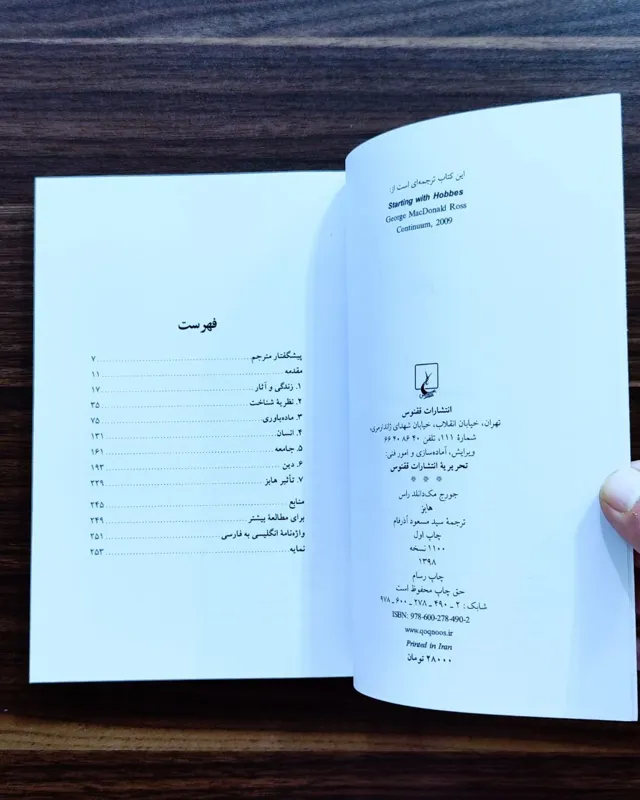 این کتاب ترجمه‌ای است از:
Starting with Hobbes
George MacDonald Ross
Continuum, 2009
انتشارات ققنوس
تهران، خیابان انقلاب، خیابان شهدای ژاندارمری،
شمارهٔ ۱۱۱، تلفن ۴۰ ۸۶ ۴۰ ۶۶
ویرایش، آماده‌سازی و امور فنی:
تحریریهٔ انتشارات ققنوس
* * *
جورج مک‌دانلد راس
هابز
ترجمهٔ سید مسعود آذرفام
چاپ اول
۱۱۰۰ نسخه
۱۳۹۸
چاپ رسام
حق چاپ محفوظ است
شابک: ۲ ـ ۴۹۰ ـ ۲۷۸ ـ ۶۰۰ ـ ۹۷۸
ISBN: 978-600-278-490-2
www.qoqnoos.ir
Printed in Iran
۲۸۰۰۰ تومان
فهرست
پیشگفتار مترجم ........ ۷
مقدمه ........ ۱۱
۱. زندگی و آثار ........ ۱۷
۲. نظریهٔ شناخت ........ ۳۵
۳. ماده‌باوری ........ ۷۵
۴. انسان ........ ۱۳۱
۵. جامعه ........ ۱۶۱
۶. دین ........ ۱۹۳
۷. تأثیر هابز ........ ۲۲۹
منابع ........ ۲۴۵
برای مطالعهٔ بیشتر ........ ۲۴۹
واژه‌نامهٔ انگلیسی به فارسی ........ ۲۵۱
نمایه ........ ۲۵۳